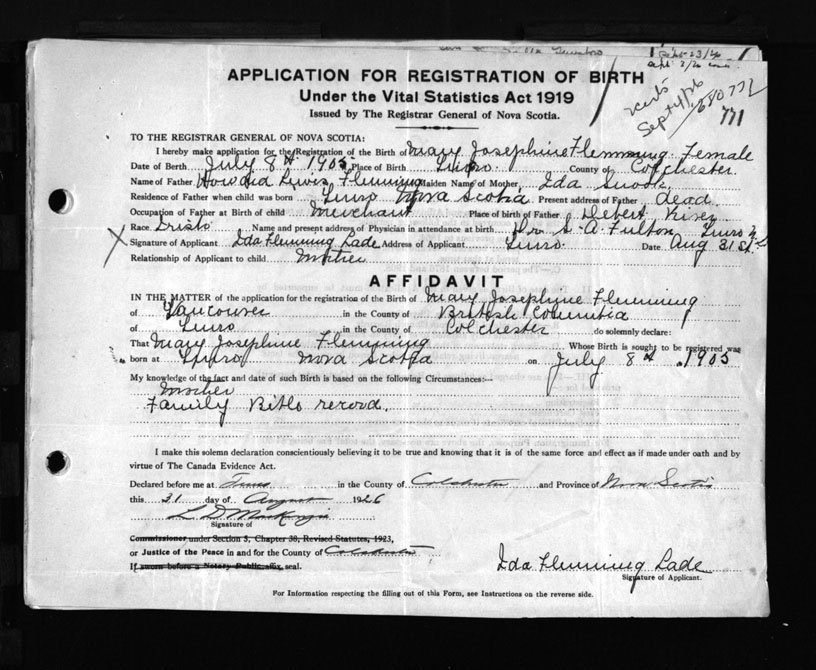 Sept 23/26
APPLICATION FOR REGISTRATION OF BIRTH
Under the Vital Statistics Act 1919
Issued by The Registrar General of Nova Scotia.
Sept 4/26
680772
771
TO THE REGISTRAR GENERAL OF NOVA SCOTIA:
I hereby make application for the Registration of the Birth of Mary Josephine Flemming Female
Date of Birth July 8th 1905 Place of Birth Truro. County of Colchester.
Name of Father Howard Lewis Flemming Maiden Name of Mother, Ida Snook
Residence of Father when child was born Truro Nova Scotia Present address of Father dead
Occupation of Father at Birth of child Merchant Place of birth of Father Debert River
Race. Name and present address of Physician in attendance at birth. S. A. Fulton Truro
X Signature of Applicant Ida Flemming Lade Address of Applicant Truro. Date Aug 31st
Relationship of Applicant to child Mother
AFFIDAVIT
IN THE MATTER of the application for the registration of the Birth of Mary Josephine Flemming
of Vancouver in the County of British Columbia
of Truro in the County of Colchester do solemnly declare:
That Mary Josephine Flemming Whose Birth is sought to be registered was
born at Truro Nova Scotia on July 8th 1905
My knowledge of the fact and date of such Birth is based on the following Circumstances:—
Mother
Family Bible record.
I make this solemn declaration conscientiously believing it to be true and knowing that it is of the same force and effect as if made under oath and by
virtue of The Canada Evidence Act.
Declared before me at Truro in the County of Colchester and Province of Nova Scotia
this 31 day of August 1926
L D MacKenzie
Signature of
Commissioner under Section 5, Chapter 38, Revised Statutes, 1923,
or Justice of the Peace in and for the County of Colchester
If sworn before a Notary Public affix seal.
Ida Flemming Lade
Signature of Applicant.
For Information respecting the filling out of this Form, see Instructions on the reverse side.